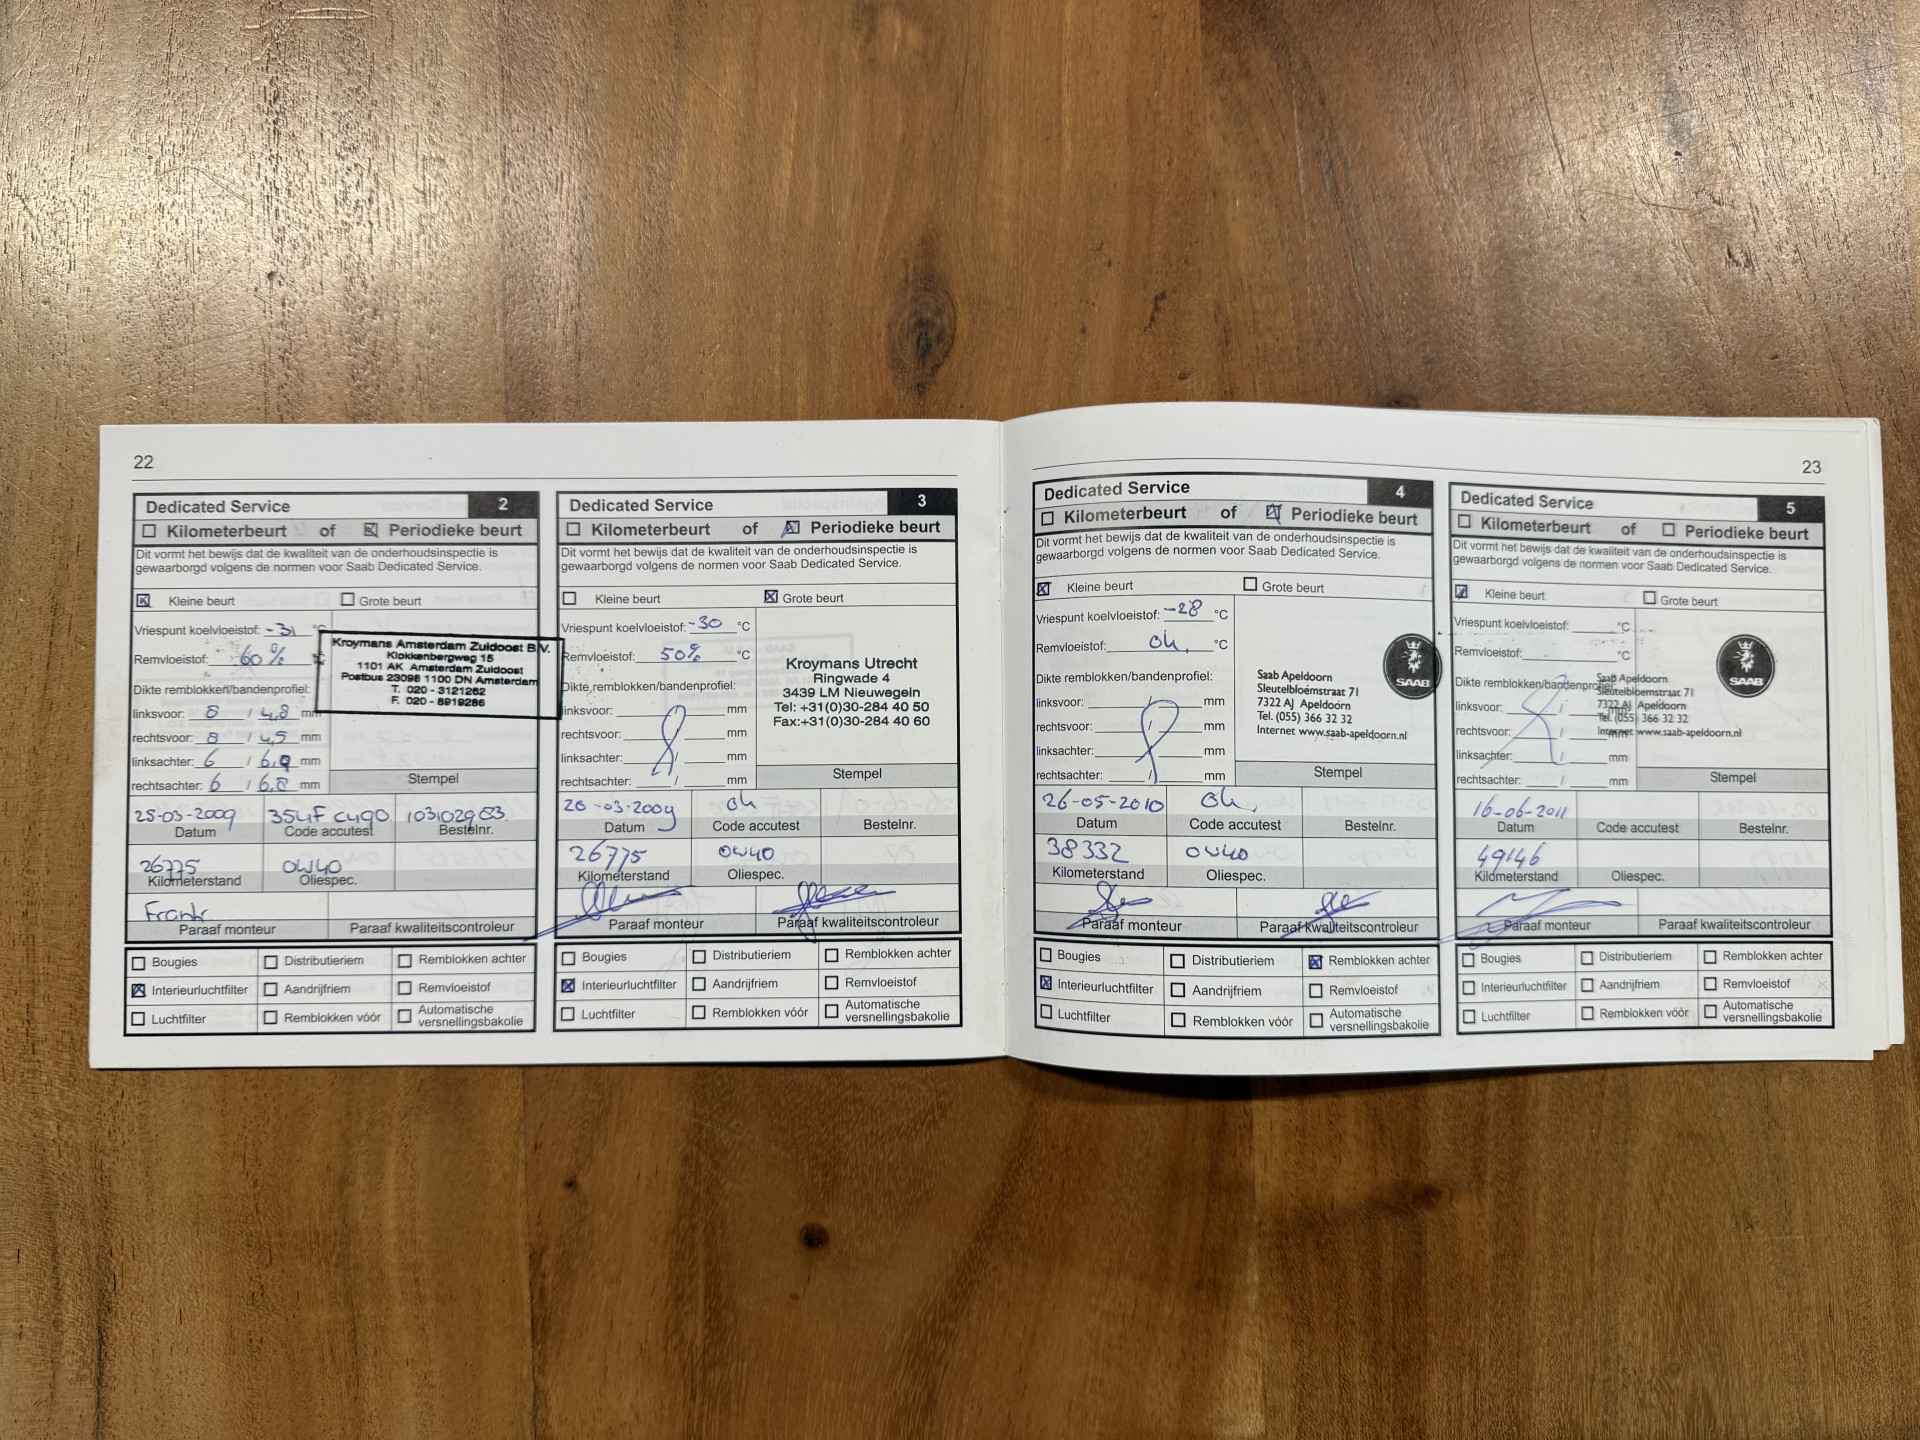 22
Dedicated Service 2
Kilometerbeurt of Periodieke beurt
Dit vormt het bewijs dat de kwaliteit van de onderhoudsinspectie is
gewaarborgd volgens de normen voor Saab Dedicated Service.
Kleine beurt Grote beurt
Vriespunt koelvloeistof: -31 °C
Remvloeistof: 60%
Dikte remblokken/bandenprofiel:
linksvoor: 8 / 4,8 mm
rechtsvoor: 8 / 4,5 mm
linksachter: 6 / 6,9 mm
rechtsachter: 6 / 6,8 mm
Kroymans Amsterdam Zuidoost B.V.
Klokkenbergweg 15
1101 AK Amsterdam Zuidoost
Postbus 23098 1100 DN Amsterdam
T. 020 - 3121262
F. 020 - 6919286
Stempel
25-03-2009
Datum Code accutest Bestelnr.
26775 0W40
Kilometerstand Oliespec.
Frank
Paraaf monteur Paraaf kwaliteitscontroleur
Bougies Distributieriem Remblokken achter
Interieurluchtfilter Aandrijfriem Remvloeistof
Luchtfilter Remblokken vóór Automatische
versnellingsbakolie
Dedicated Service 3
Kilometerbeurt of Periodieke beurt
Dit vormt het bewijs dat de kwaliteit van de onderhoudsinspectie is
gewaarborgd volgens de normen voor Saab Dedicated Service.
Kleine beurt Grote beurt
Vriespunt koelvloeistof: -30 °C
Remvloeistof: 50% °C
Dikte remblokken/bandenprofiel:
linksvoor: / mm
rechtsvoor: / mm
linksachter: / mm
rechtsachter: / mm
Kroymans Utrecht
Ringwade 4
3439 LM Nieuwegein
Tel: +31(0)30-284 40 50
Fax:+31(0)30-284 40 60
Stempel
26-03-2009 ok
Datum Code accutest Bestelnr.
26775 0W40
Kilometerstand Oliespec.
Paraaf monteur Paraaf kwaliteitscontroleur
Bougies Distributieriem Remblokken achter
Interieurluchtfilter Aandrijfriem Remvloeistof
Luchtfilter Remblokken vóór Automatische
versnellingsbakolie
23
Dedicated Service 4
Kilometerbeurt of Periodieke beurt
Dit vormt het bewijs dat de kwaliteit van de onderhoudsinspectie is
gewaarborgd volgens de normen voor Saab Dedicated Service.
Kleine beurt Grote beurt
Vriespunt koelvloeistof: -28 °C
Remvloeistof: ok, °C
Dikte remblokken/bandenprofiel:
linksvoor: / mm
rechtsvoor: / mm
linksachter: / mm
rechtsachter: / mm
SAAB
Saab Apeldoorn
Sleutelbloemstraat 71
7322 AJ Apeldoorn
Tel. (055) 366 32 32
Internet www.saab-apeldoorn.nl
Stempel
26-05-2010 ok,
Datum Code accutest Bestelnr.
38332 0W40
Kilometerstand Oliespec.
Paraaf monteur Paraaf kwaliteitscontroleur
Bougies Distributieriem Remblokken achter
Interieurluchtfilter Aandrijfriem Remvloeistof
Luchtfilter Remblokken vóór Automatische
versnellingsbakolie
Dedicated Service 5
Kilometerbeurt of Periodieke beurt
Dit vormt het bewijs dat de kwaliteit van de onderhoudsinspectie is
gewaarborgd volgens de normen voor Saab Dedicated Service.
Kleine beurt Grote beurt
Vriespunt koelvloeistof: °C
Remvloeistof: °C
Dikte remblokken/bandenprofiel:
linksvoor: / mm
rechtsvoor: / mm
linksachter: / mm
rechtsachter: / mm
SAAB
Saab Apeldoorn
Sleutelbloemstraat 71
7322 AJ Apeldoorn
Tel. (055) 366 32 32
Internet www.saab-apeldoorn.nl
Stempel
16-06-2011
Datum Code accutest Bestelnr.
49146
Kilometerstand Oliespec.
Paraaf monteur Paraaf kwaliteitscontroleur
Bougies Distributieriem Remblokken achter
Interieurluchtfilter Aandrijfriem Remvloeistof
Luchtfilter Remblokken vóór Automatische
versnellingsbakolie